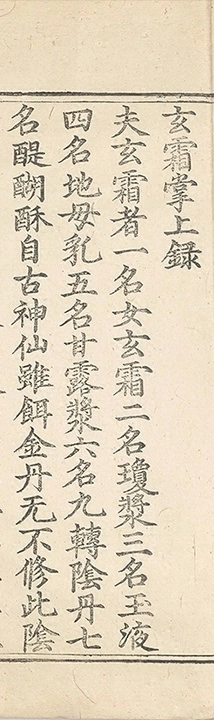 玄霜掌上録
夫玄霜者一名女玄霜二名瓊漿三名玉液
四名地母乳五名甘露漿六名九轉陰丹七
名醍醐酥自古神仙雖餌金丹无不修此陰